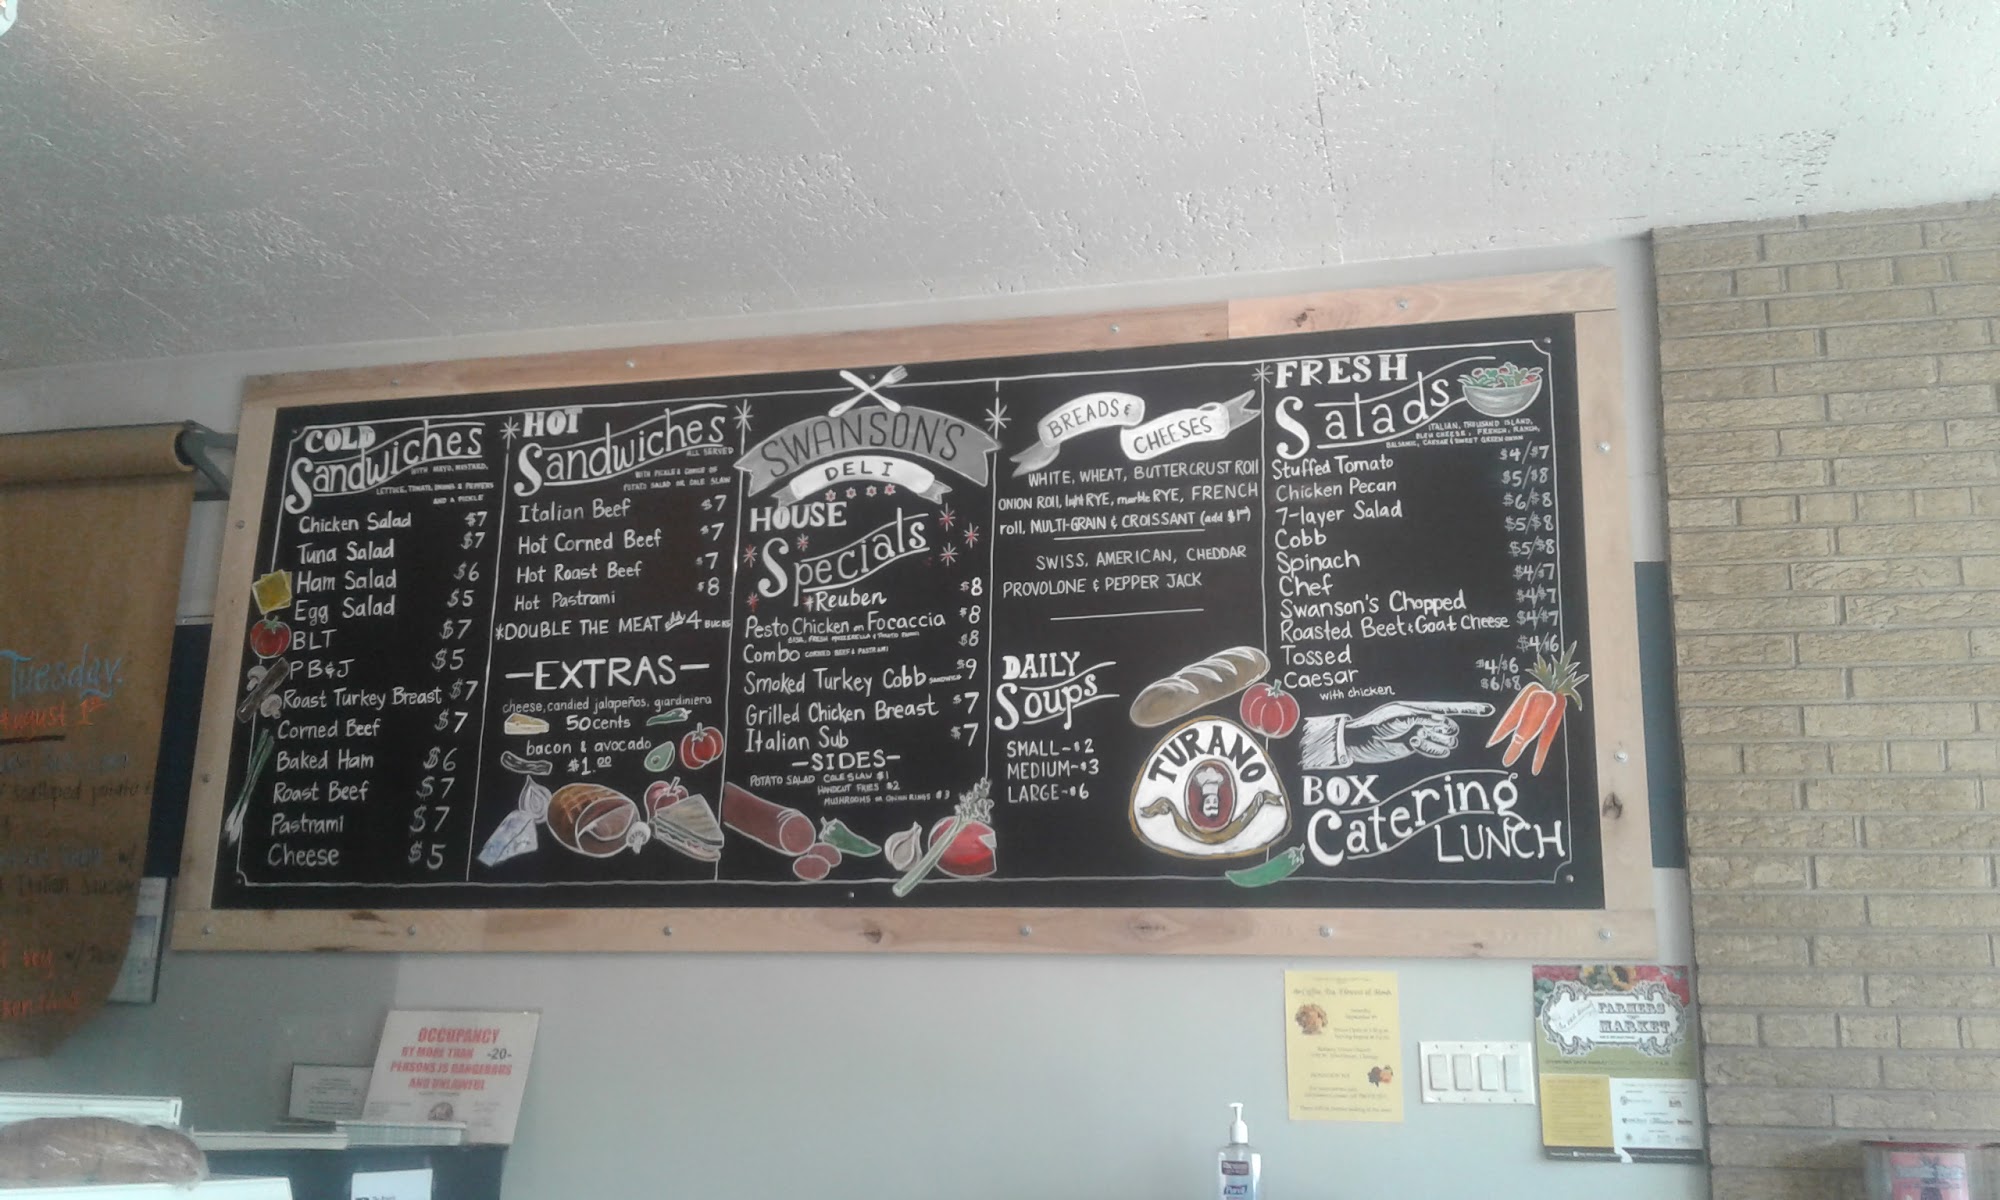 COLD
Sandwiches
WITH MAYO, MUSTARD,
LETTUCE, TOMATO, ONIONS & PEPPERS
AND A PICKLE
Chicken Salad $7
Tuna Salad $7
Ham Salad $6
Egg Salad $5
BLT $7
PB&J $5
Roast Turkey Breast $7
Corned Beef $7
Baked Ham $6
Roast Beef $7
Pastrami $7
Cheese $5
HOT
Sandwiches
ALL SERVED
WITH PICKLE & CHOICE OF
POTATO SALAD OR COLE SLAW
Italian Beef $7
Hot Corned Beef $7
Hot Roast Beef $7
Hot Pastrami $8
*DOUBLE THE MEAT 4 BUCKS
—EXTRAS—
cheese, candied jalapeños, giardiniera
50 cents
bacon & avocado
$1.00
SWANSON'S
DELI
HOUSE
Specials
Reuben $8
Pesto Chicken on Focaccia $8
BASIL, FRESH MOZZARELLA & TOMATO
Combo CORNED BEEF & PASTRAMI $8
Smoked Turkey Cobb SANDWICH $9
Grilled Chicken Breast $7
Italian Sub $7
—SIDES—
POTATO SALAD COLE SLAW $1
HANDCUT FRIES $2
MUSHROOMS OR ONION RINGS $3
BREADS &
CHEESES
WHITE, WHEAT, BUTTERCRUST ROLL
ONION ROLL, light RYE, marble RYE, FRENCH
roll, MULTI-GRAIN & CROISSANT (add $1.00)
SWISS, AMERICAN, CHEDDAR
PROVOLONE & PEPPER JACK
DAILY
Soups
SMALL-$2
MEDIUM-$3
LARGE-$6
TURANO
FRESH
Salads
ITALIAN, THOUSAND ISLAND,
BLEU CHEESE, FRENCH, RANCH,
BALSAMIC, CAESAR & SWEET GREEN ONION
Stuffed Tomato $4/$7
Chicken Pecan $5/$8
7-layer Salad $6/$8
Cobb $5/$8
Spinach $5/$8
Chef $4/$7
Swanson's Chopped $4/$7
Roasted Beet & Goat Cheese $4/$7
Tossed $4/$6
Caesar $4/$6
with chicken $6/$8
BOX
Catering
LUNCH
Tuesday
August 1st
scalloped potato
Italian
OCCUPANCY
BY MORE THAN -20-
PERSONS IS DANGEROUS
AND UNLAWFUL
FARMERS
MARKET
Purell